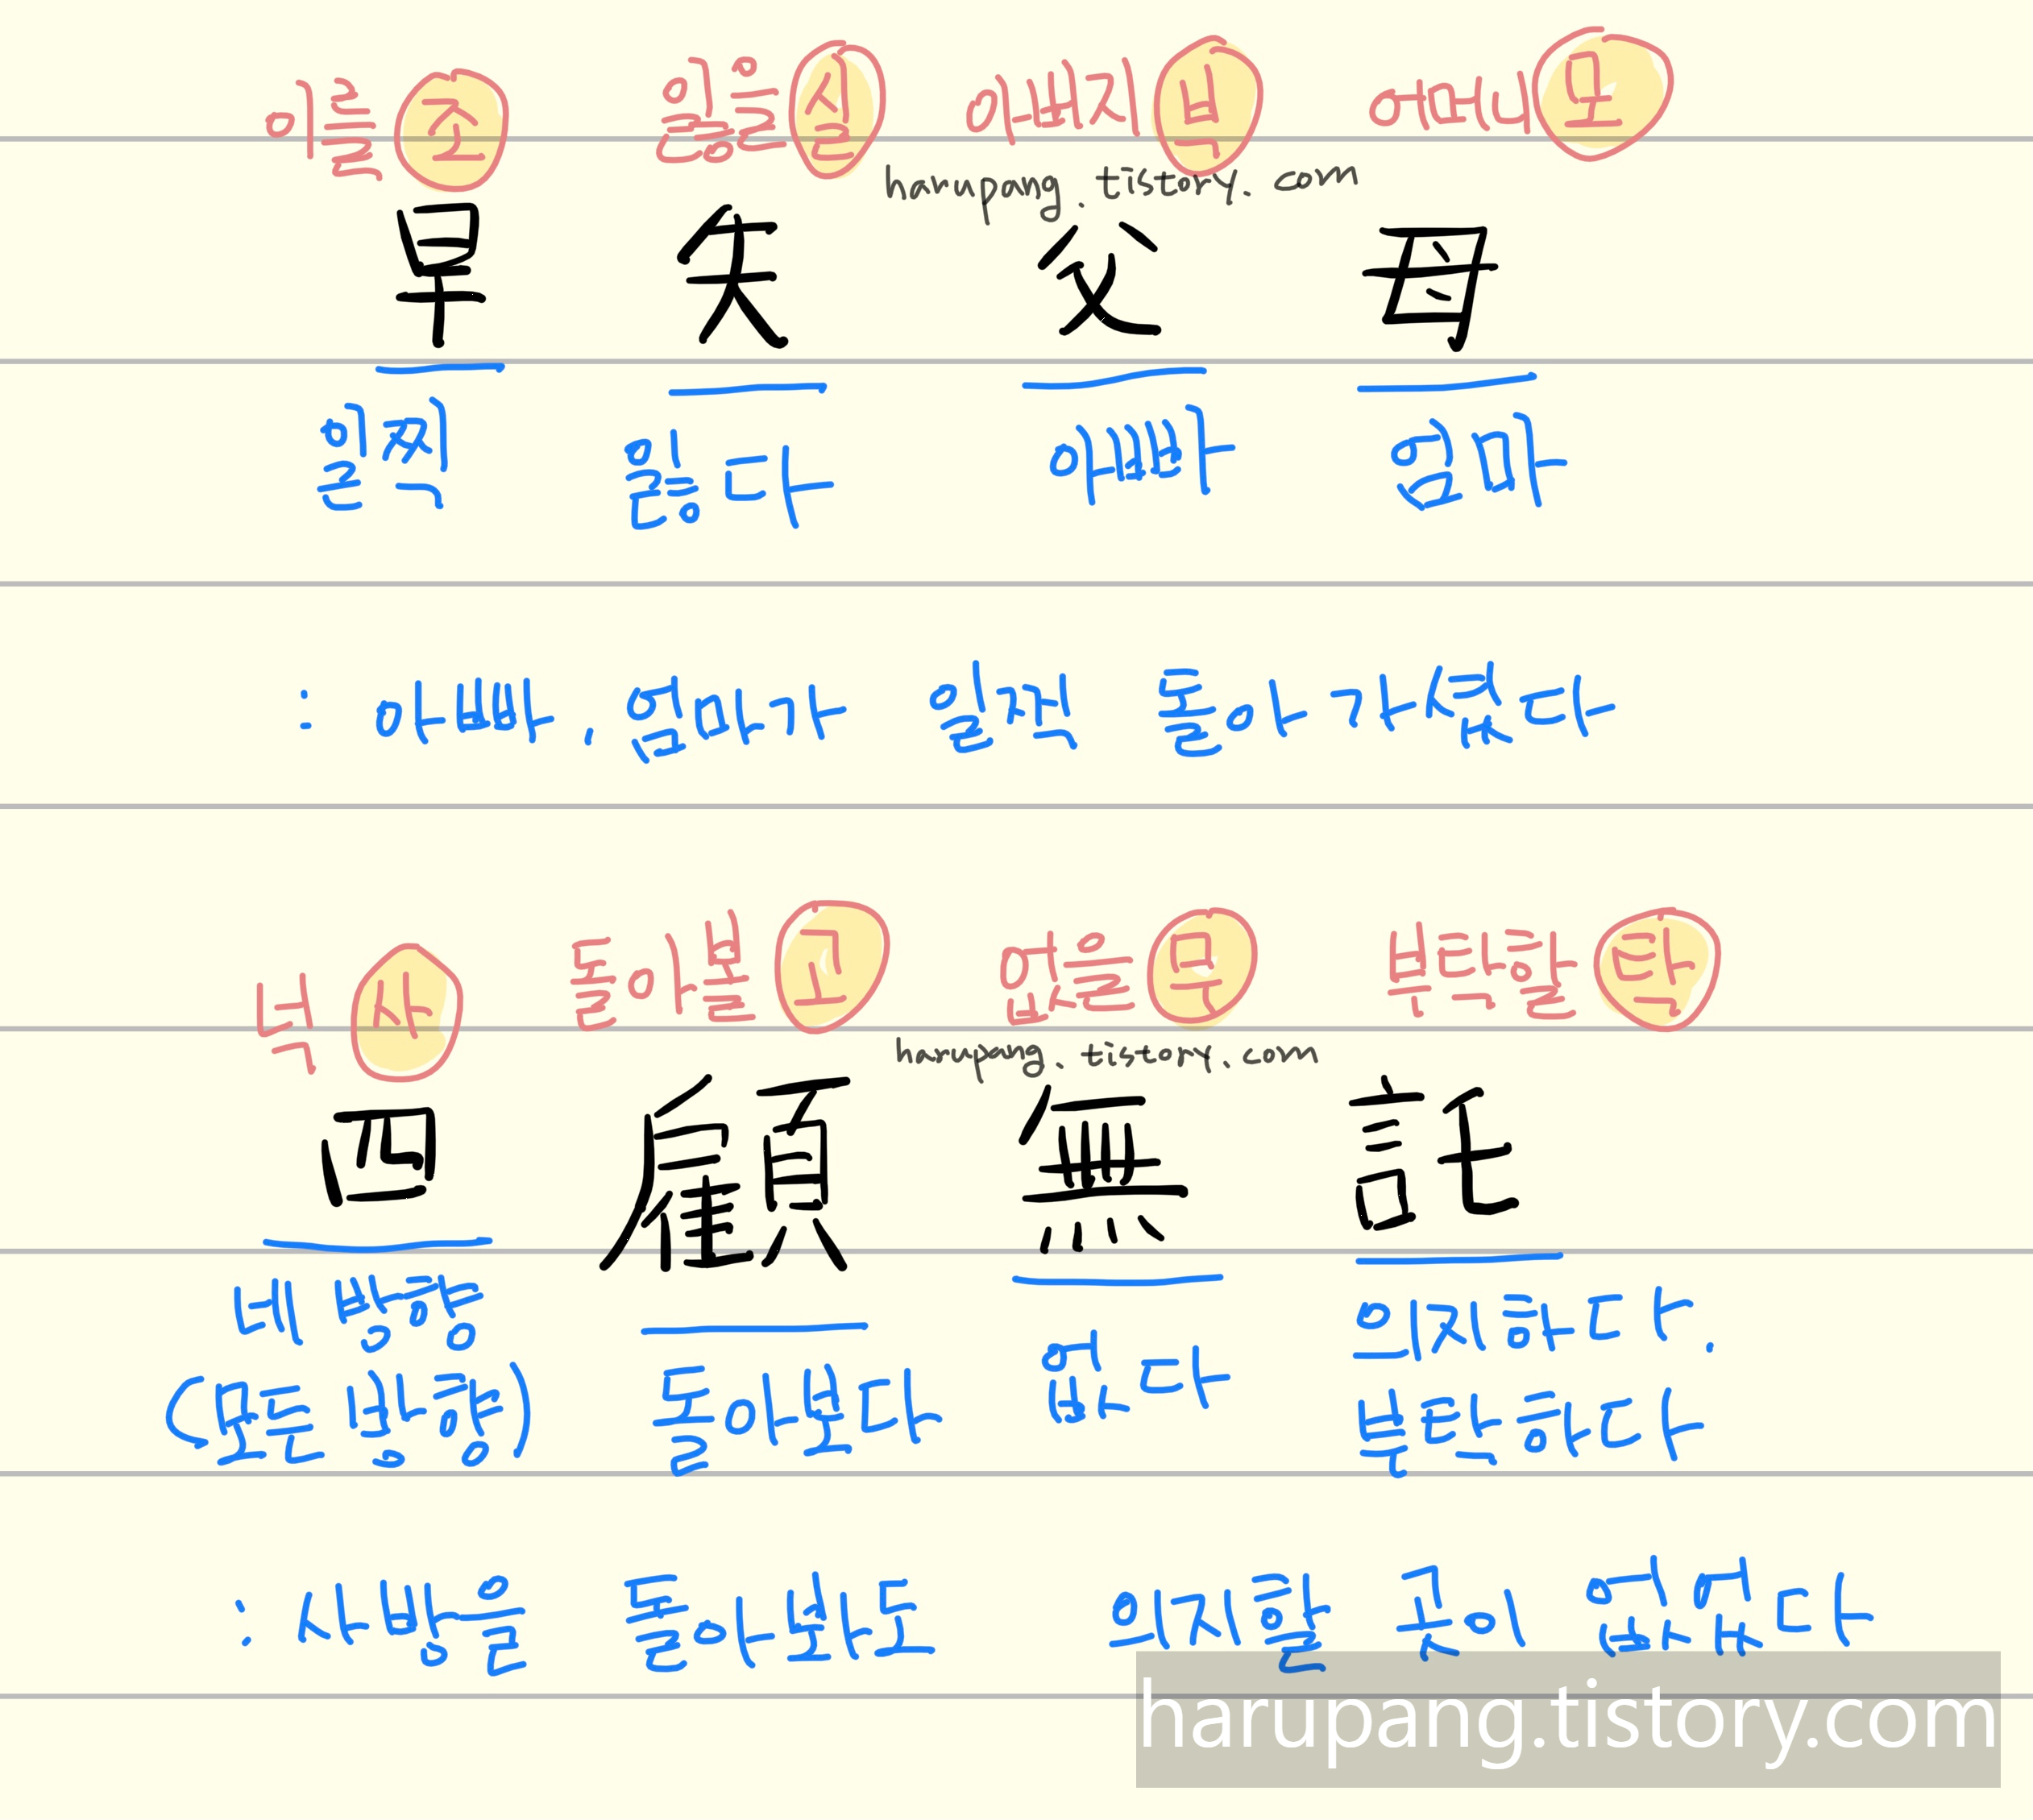 이를 조 잃을 실 아버지 부 어머니 모
harupang.tistory.com
早 失 父 母
일찍 잃다 아빠 엄마
: 아빠, 엄마가 일찍 돌아가셨다
넉 사 돌아볼 고 없을 무 부탁할 탁
harupang.tistory.com
四 顧 無 託
네 방향 돌아보다 없다 의지하다.
(모든 방향) 부탁하다
: 사방을 돌아봐도 의지할 곳이 없었다
harupang.tistory.com